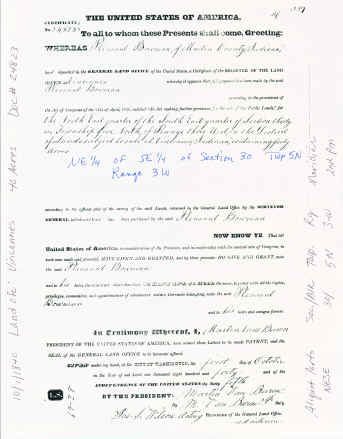 THE UNITED STATES OF AMERICA.
CERTIFICATE
To all to whom these Presents shall come, Greeting:
WHEREAS Bowman of Martin County Indiana
deposited in the GENERAL LAND OFFICE of the United States, a Certificate of the REGISTER OF THE LAND
OFFICE at Vincennes whereby it appears that full payment has been made by the said
Bowman
according to the provisions of
the Act of Congress of the 24th of April, 1820, entitled "An Act making further provision for the sale of the Public Lands," for
the North East quarter of the South East quarter of Section thirty
in Township five North of Range three West in the District
of Lands subject to sale at Vincennes Indiana containing forty
acres
NE 1/4 of SE 1/4 of Section 30 TWP 5N
Range 3W
according to the official plat of the survey of the said Lands, returned to the General Land Office by the SURVEYOR
GENERAL, which said tract has been purchased by the said Bowman
NOW KNOW YE, That the
United States of America, in consideration of the Premises, and in conformity with the several acts of Congress, in
such case made and provided, HAVE GIVEN AND GRANTED, and by these presents DO GIVE AND GRANT, unto
the said Bowman
and to his heirs, the said tract above described: TO HAVE AND TO HOLD the same, together with all the rights,
privileges, immunities, and appurtenances of whatsoever nature, thereunto belonging, unto the said
Bowman and to his heirs and assigns forever.
In Testimony Whereof, I, Martin Van Buren
PRESIDENT OF THE UNITED STATES OF AMERICA, have caused these Letters to be made PATENT, and the
SEAL of the GENERAL LAND OFFICE to be hereunto affixed.
GIVEN under my hand, at the CITY OF WASHINGTON, the first day of October
in the Year of our Lord one thousand eight hundred and forty and of the
INDEPENDENCE OF THE UNITED STATES the Sixty fifth
BY THE PRESIDENT: Martin Van Buren
By M. Van Buren Jr. Sec'y.
RECORDER of the General Land Office
LS
10/1/1840 Land ofc: Vincennes 40 Acres Doc# 24823
Aliquot Parts Sec/Blk Twp. Rg Meridian
NESE 30/ 5N 3W 2nd PM